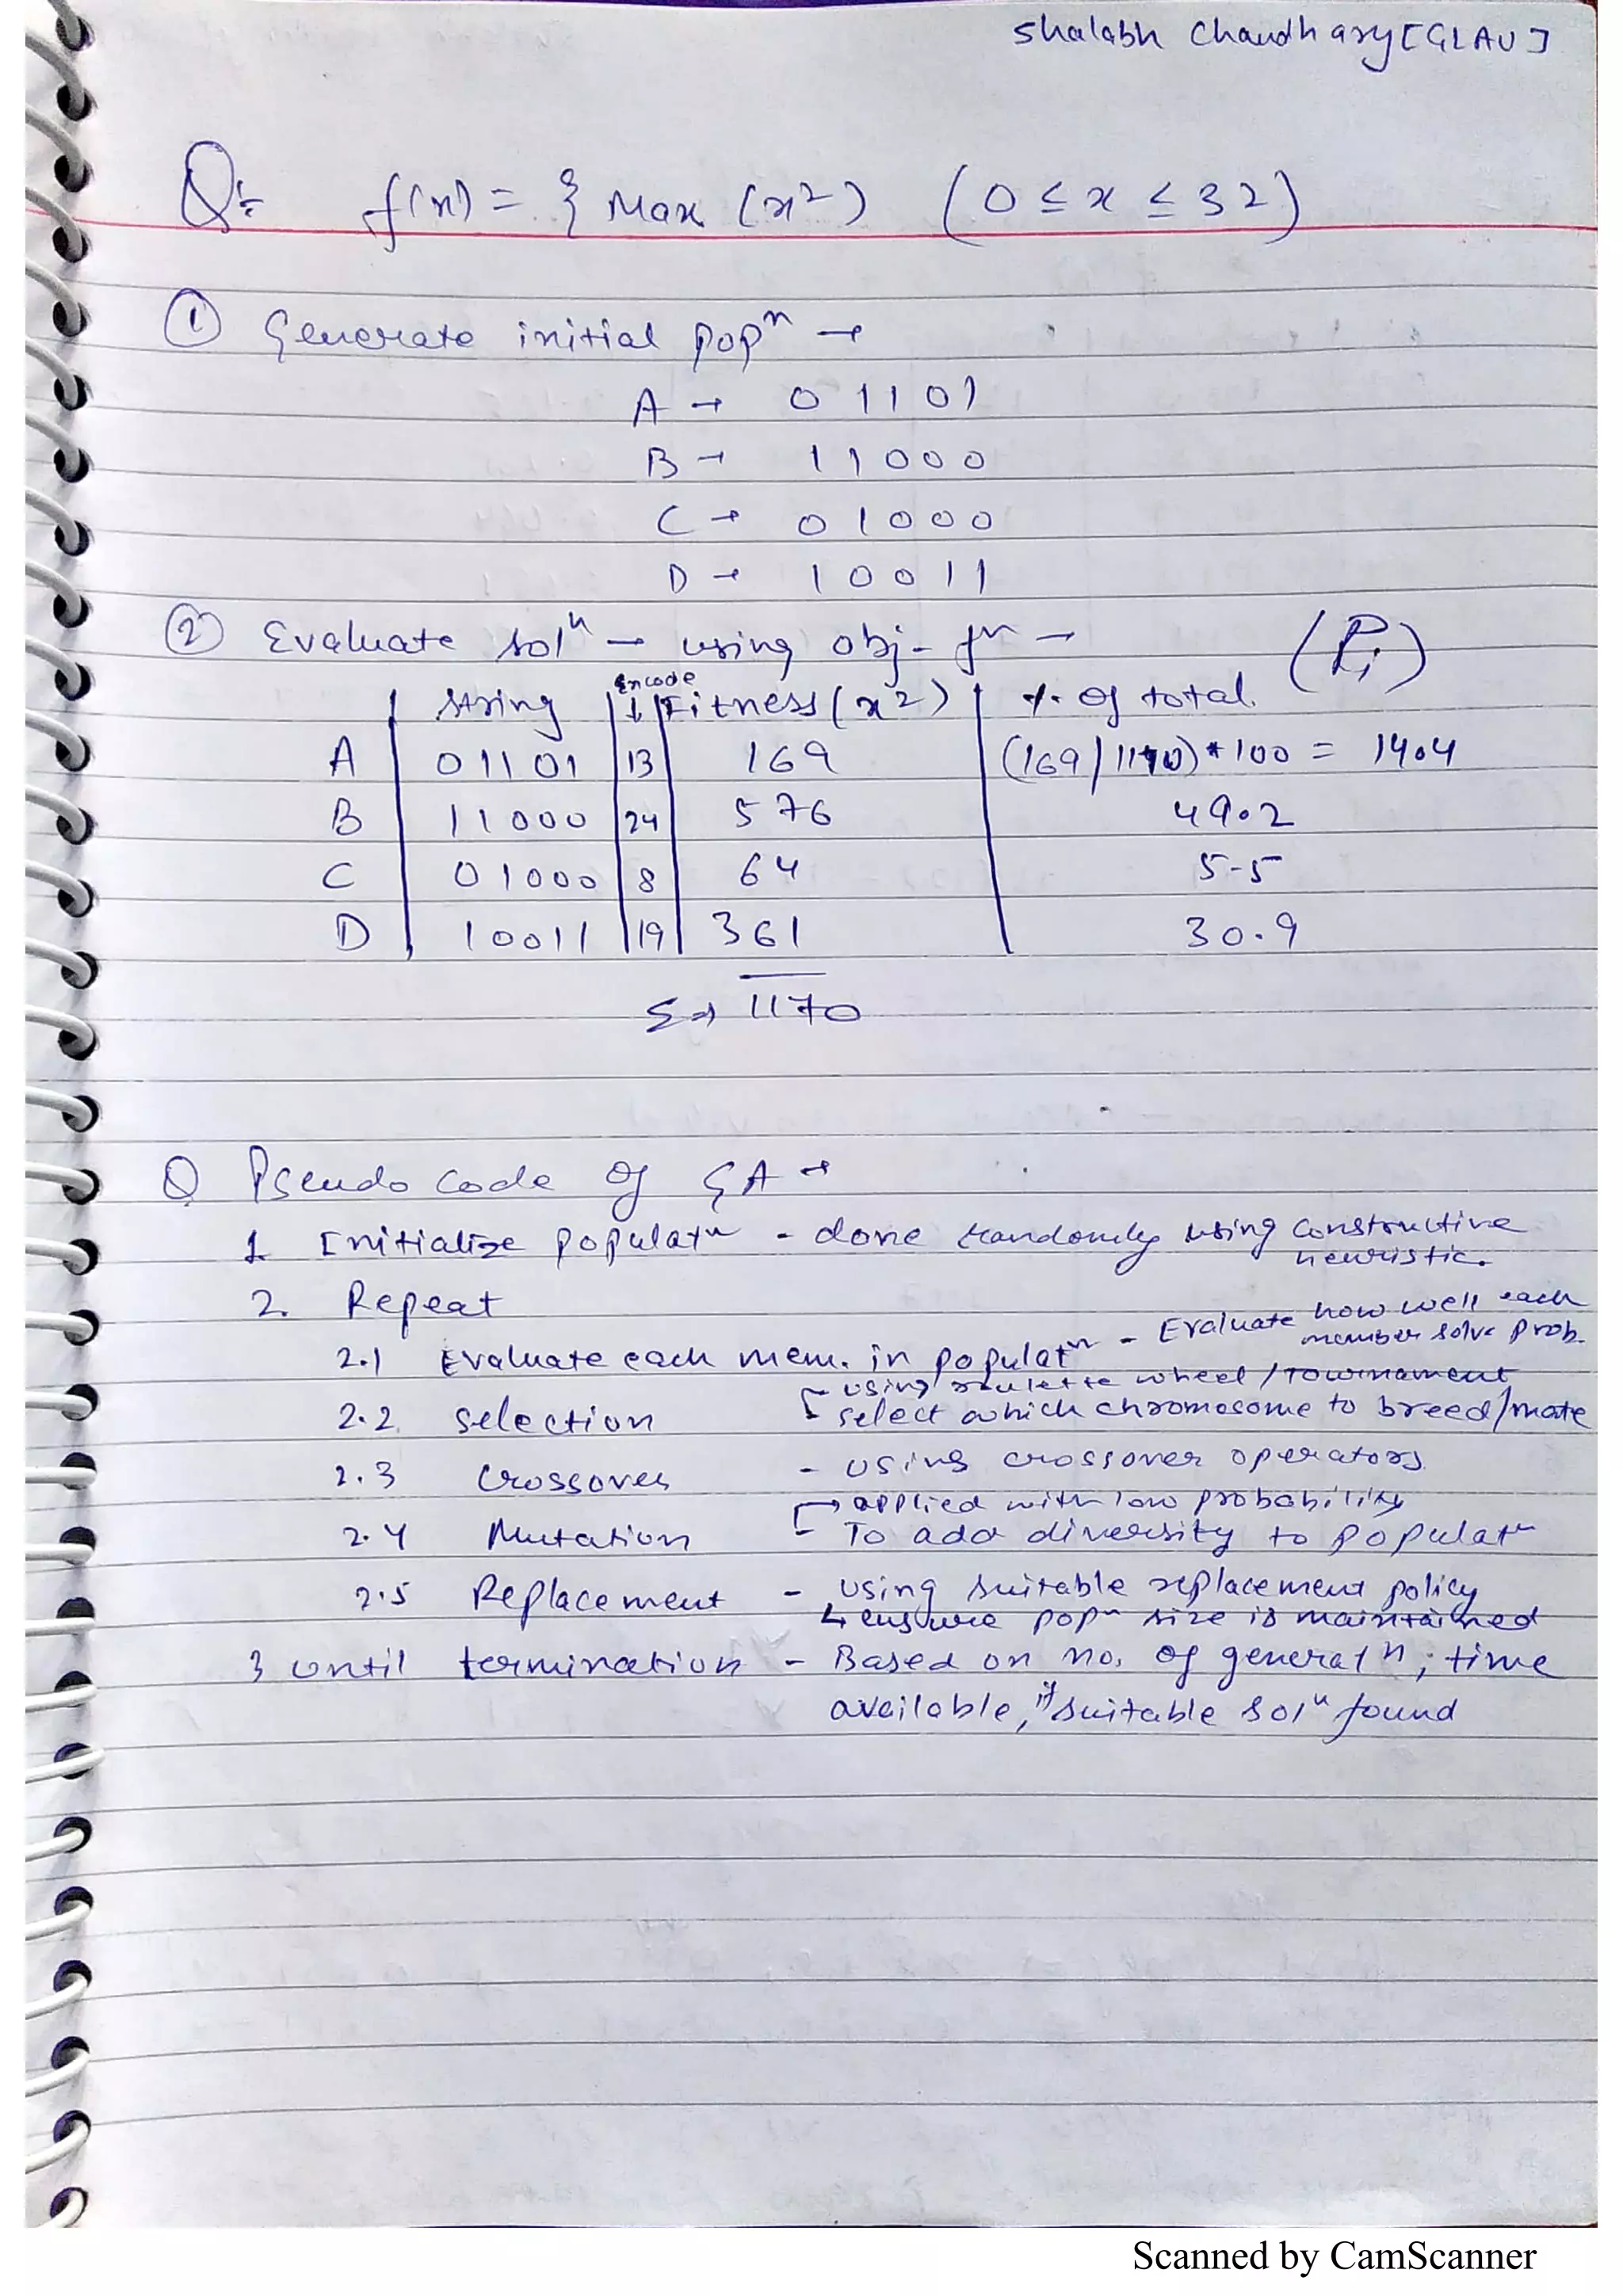 Shalabh Chaudhary [GLAU]
Q:- f(x) = { Max (x²) (0 ≤ x ≤ 32)
① Generate initial popⁿ →
A → 01101
B → 11000
C → 01000
D → 10011
② Evaluate solⁿ → using obj- fⁿ → (Pi)
String Encode ↓ Fitness (x²) % of total
A 01101 13 169 (169/1170)*100 = 14.4
B 11000 24 576 49.2
C 01000 8 64 5.5
D 10011 19 361 30.9
Σ ⇒ 1170
Q Pseudo code of GA →
1. Initialize populatⁿ - done randomly using constructive
heuristic.
2. Repeat
2.1 Evaluate each mem. in populatⁿ - Evaluate how well each
member solve prob.
using roulette wheel / Tournament
2.2 selection - select which chromosome to breed/mate
2.3 Crossover - using crossover operators
→ applied with low probability
2.4 Mutation - To add diversity to populatⁿ
2.5 Replacement - using suitable replacement policy
↳ ensure popⁿ size is maintained
3 until termination - Based on no. of generatⁿ, time
available, if suitable solⁿ found
Scanned by CamScanner